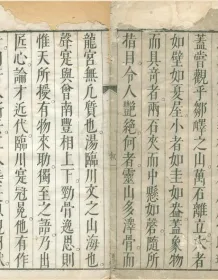 蓋嘗觀乎鄒嶧之山萬石離立大者
如壁如夏屋小者如圭如盎蓋象物
而具奇者兩石夾而中懸如磬隨所
指目令人艷絶何者靈山多澤骨而
龍宮無几質也湯臨川文之山海也
聲寔與曾南豐相上下勁骨逸思則
惟天所授有物來助獨至之語乃出
匠心論才近代臨川寔冠晃他有作